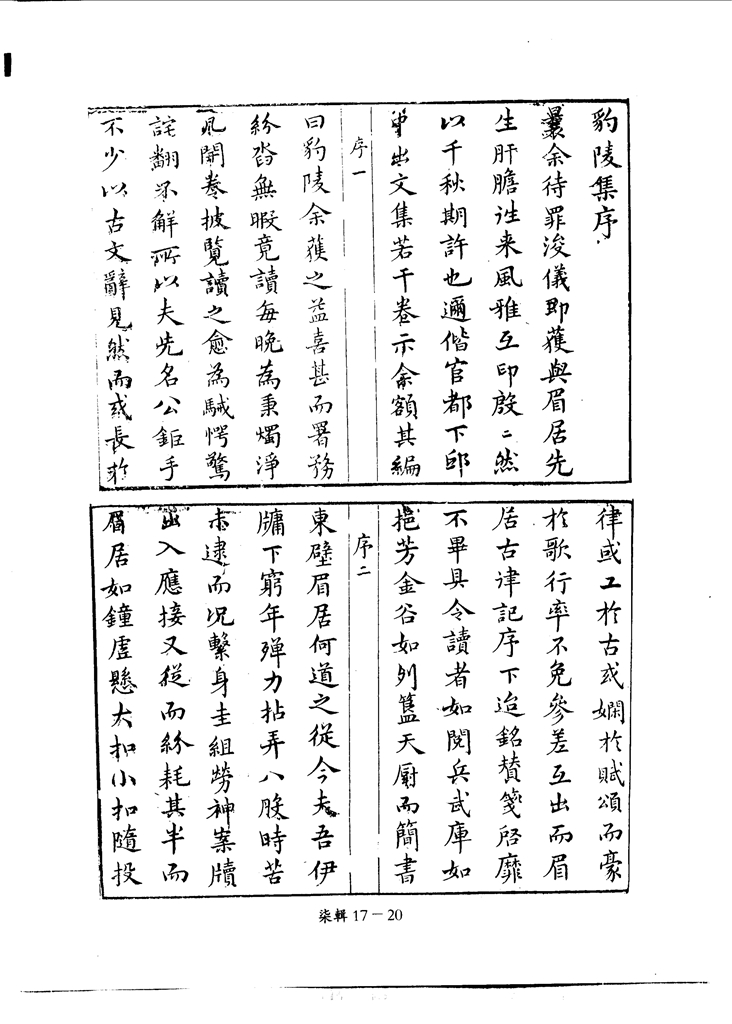 豹陵集序
曩余待罪浚儀即獲與眉居先
生肝膽往来風雅互印殷〻然
以千秋期許也邇偕官都下邸
中出文集若干卷示余額其編
序一
曰豹陵余獲之益喜甚而署務
紛沓無暇竟讀每晚為秉燭淨
几開卷披覽讀之愈為駴愕驚
詫翻不解所以夫先名公鉅手
不少以古文辭見然而或長於
律或工於古或嫻於賦頌而豪
於歌行率不免參差互出而眉
居古律記序下迨銘賛箋啓靡
不畢具令讀者如閱兵武庫如
挹芳金谷如列簋天厨而簡書
序二
東壁眉居何道之從今夫吾伊
牖下窮年殫力拈弄八股時苦
未逮而况繫身圭組勞神案牘
出入應接又從而紛耗其半而
眉居如鐘虛懸大扣小扣隨投
柒輯 17－20